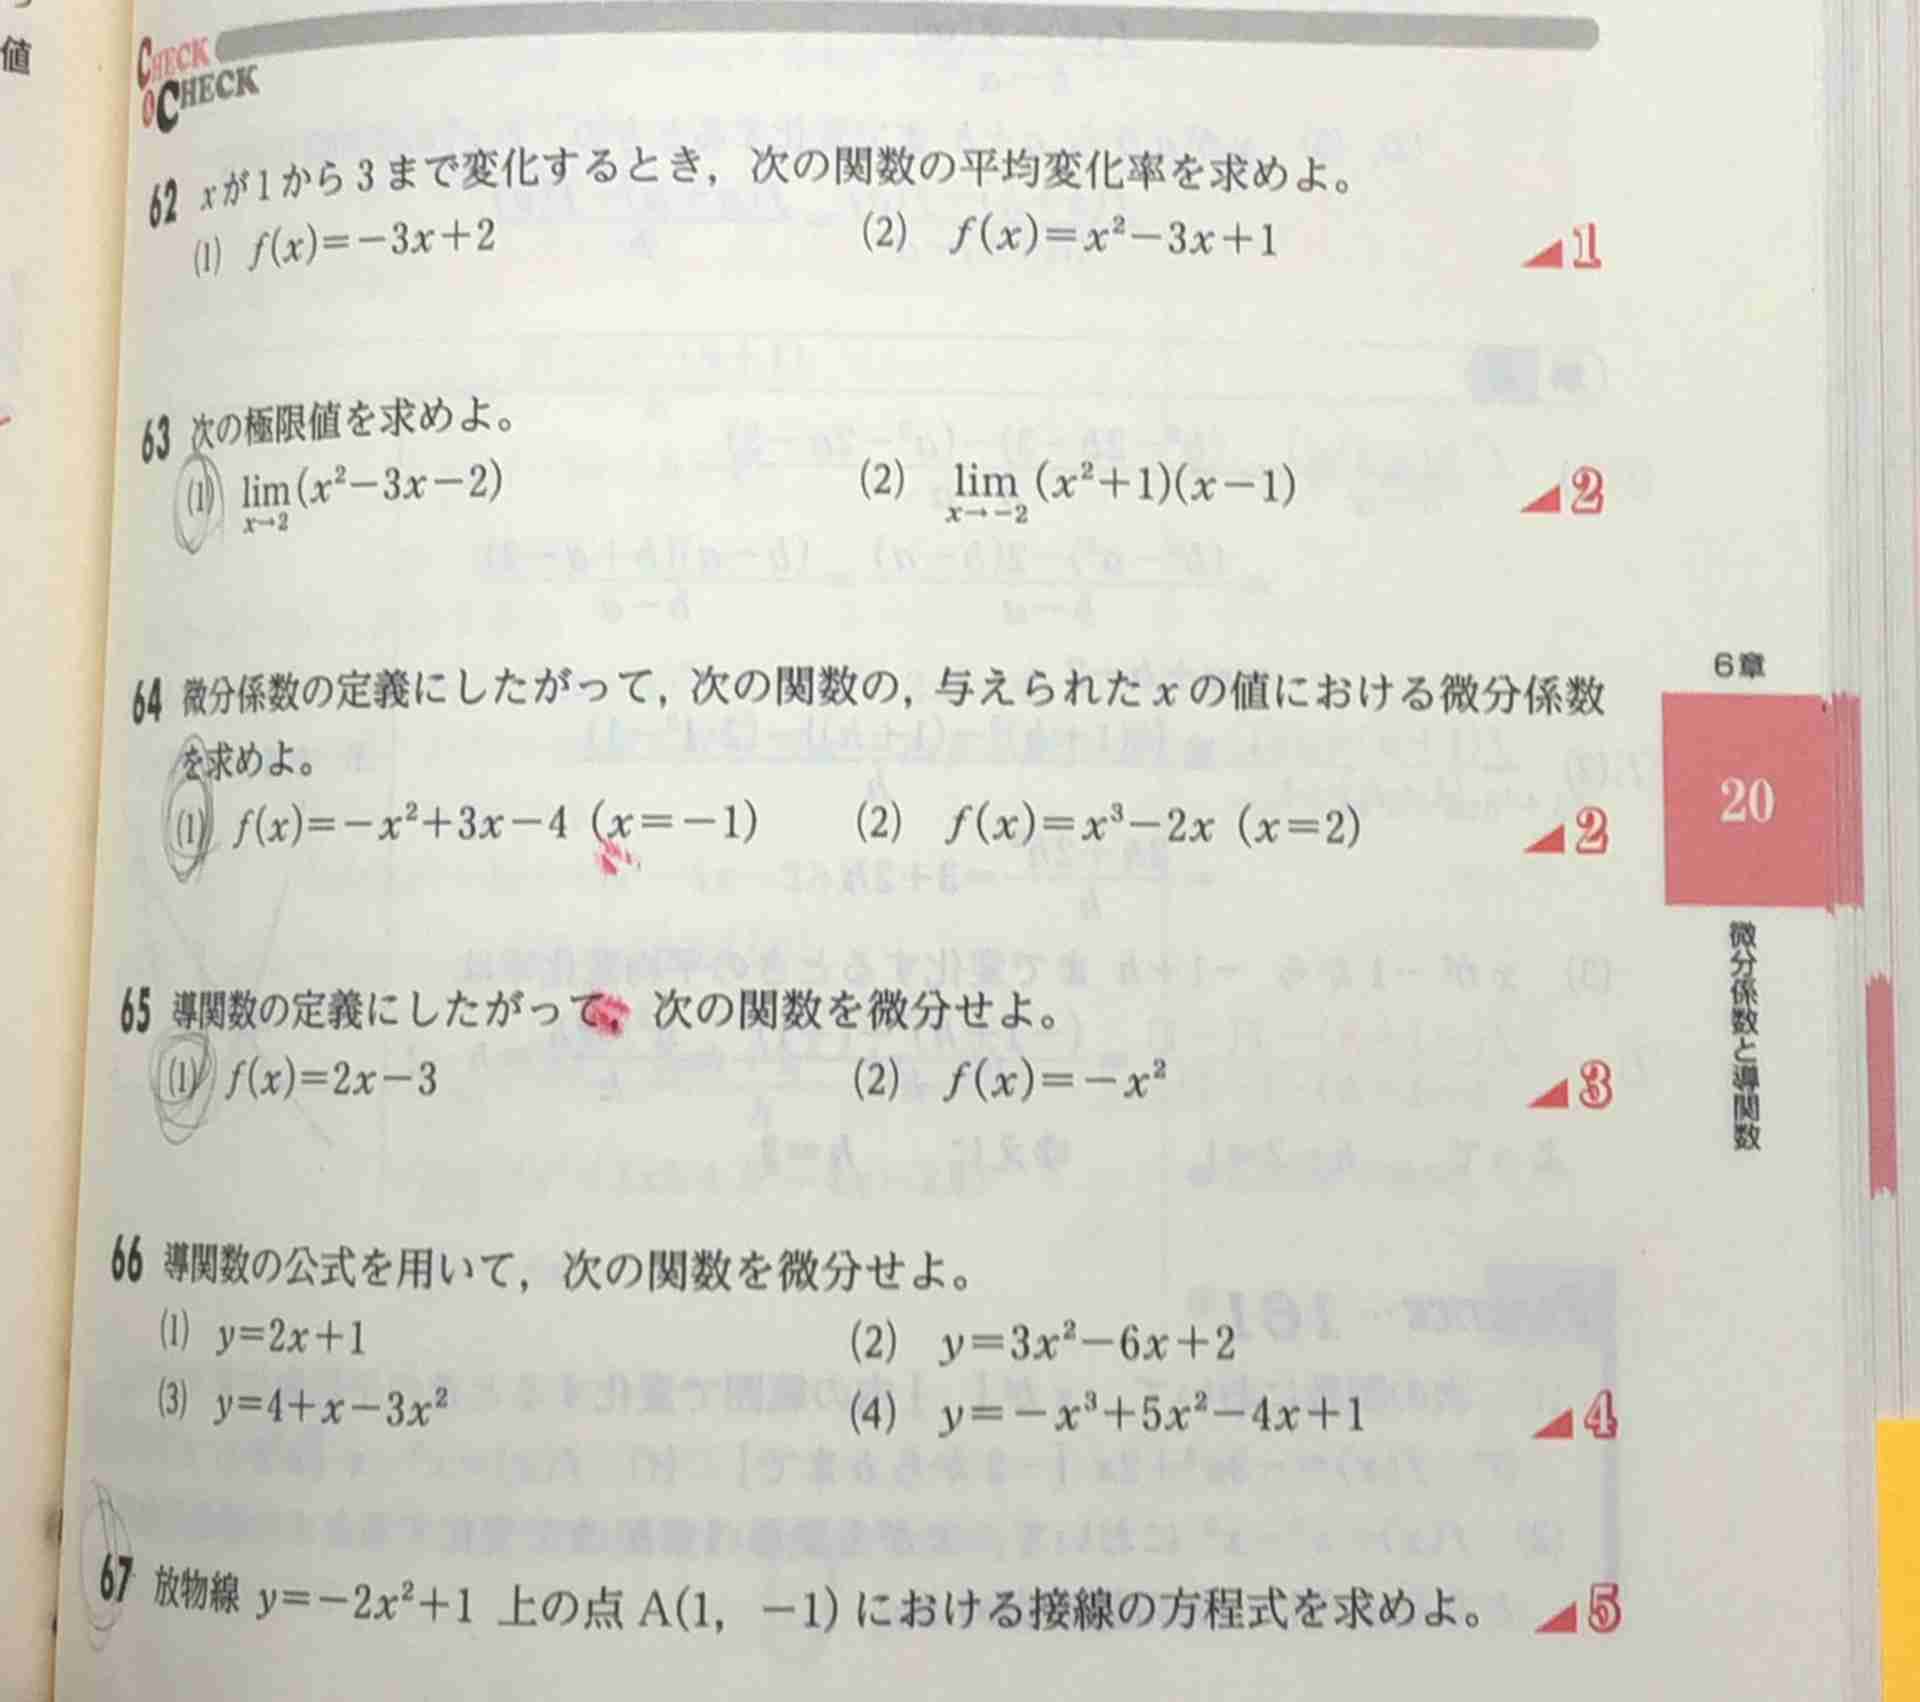 値
CHECK
CHECK
62 xが1から3まで変化するとき，次の関数の平均変化率を求めよ。
(1) f(x)=−3x+2 (2) f(x)=x²−3x+1 1
63 次の極限値を求めよ。
(1) lim(x²−3x−2) (2) lim(x²+1)(x−1) 2
x→2 x→−2
64 微分係数の定義にしたがって，次の関数の，与えられた x の値における微分係数
を求めよ。
(1) f(x)=−x²+3x−4 (x=−1) (2) f(x)=x³−2x (x=2) 2
65 導関数の定義にしたがって，次の関数を微分せよ。
(1) f(x)=2x−3 (2) f(x)=−x² 3
66 導関数の公式を用いて，次の関数を微分せよ。
(1) y=2x+1 (2) y=3x²−6x+2
(3) y=4+x−3x² (4) y=−x³+5x²−4x+1 4
67 放物線 y=−2x²+1 上の点 A(1, −1) における接線の方程式を求めよ。 5
6章
20
微分係数と導関数